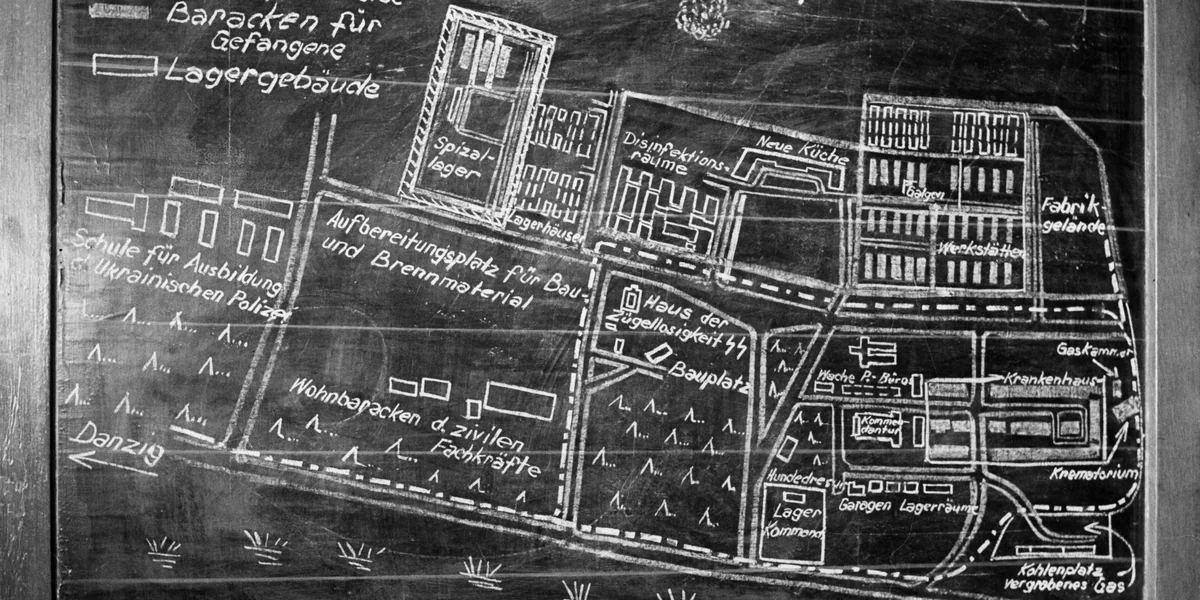 Baracken für
Gefangene
Lagergebäude
Spizal-
lager
Lagerhäuser
Disinfektions-
räume
Neue Küche
Galgen
Werkstätten
Fabrik-
gelände
Schule für Ausbildung
d. Ukrainischen Polizei
Aufbereitungsplatz für Bau-
und Brennmaterial
Haus der
Zügellosigkeit SS
Bauplatz
Wohnbaracken d. zivilen
Fachkräfte
Danzig
Wache P.-Büro
Gaskammer
Krankenhaus
Kommen-
dantur
Krematorium
Hundedressur
Garagen Lagerräume
Lager
Kommand.
Kohlenplatz
vergrabenes Gas